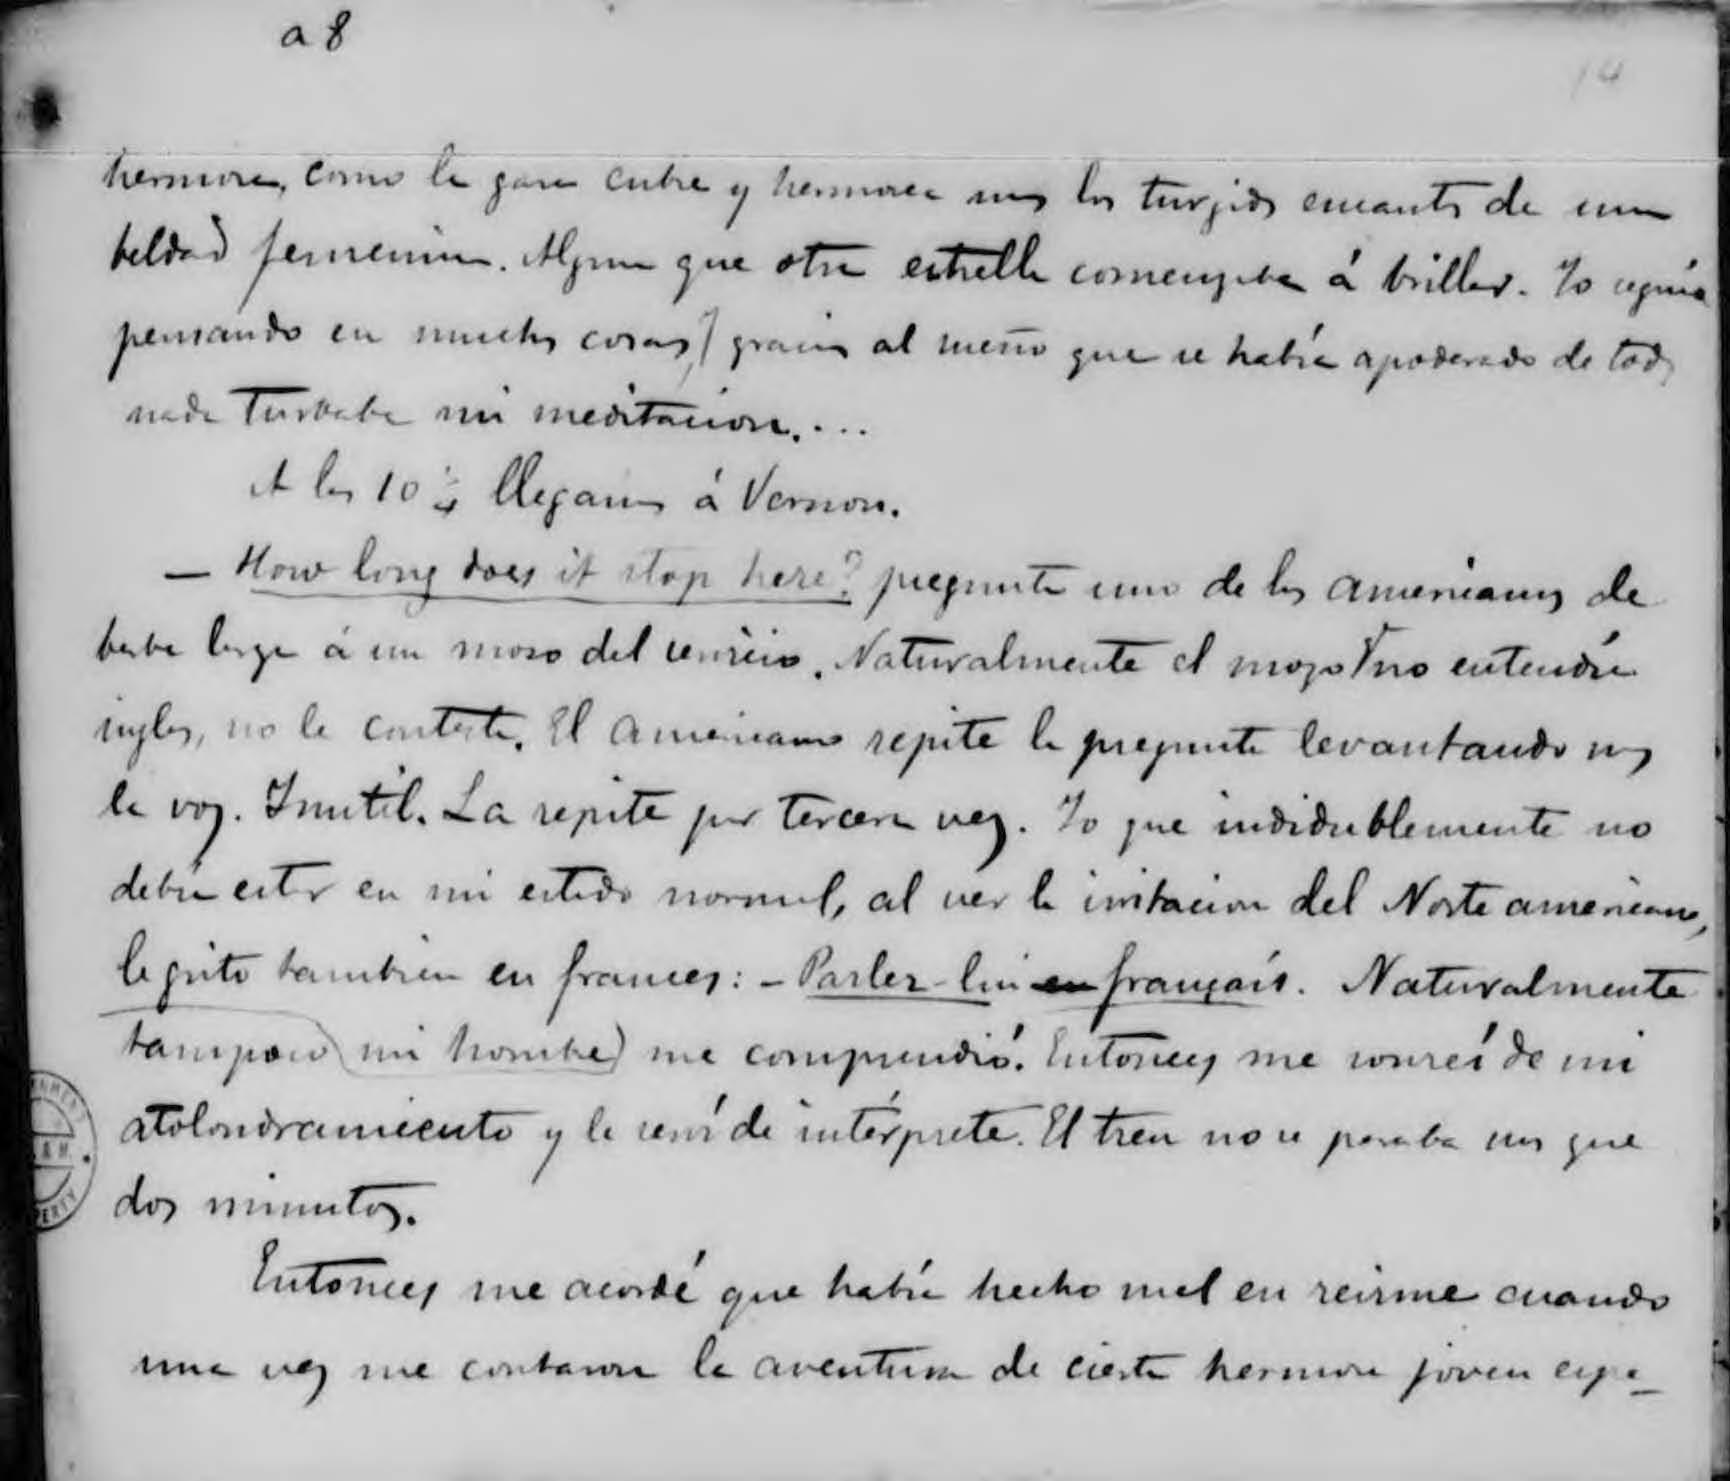 a 8
14
hermosea, como la gasa cubre y hermosea mas los turjidos encantos de una
beldad femenina. Alguna que otra estrella comenzaba á brillar. Yo seguia
pensando en muchas cosas, gracias al sueño que se habia apoderado de todos
nada turbaba mi meditacion....
A las 10 llegamos á Vernon.
— How long does it stop here? pregunta uno de los americanos de
barba larga á un moso del servicio. Naturalmente el mozo no entendia
ingles, no le contesta. El americano repite la pregunta levantando mas
la voz. Inutil. La repite por tercera vez. Yo que indudablemente no
debia estar en mi estado normal, al ver la irritacion del Norte americano,
le grito tambien en frances: – Parlez-lui en français. Naturalmente
tampoco mi hombre me comprendió. Entonces me sonreí de mi
atolondramiento y le serví de intérprete. El tren no se paraba mas que
dos minutos.
Entonces me acordé que habia hecho mal en reirme cuando
una vez me contaron la aventura de cierta hermosa joven espa–